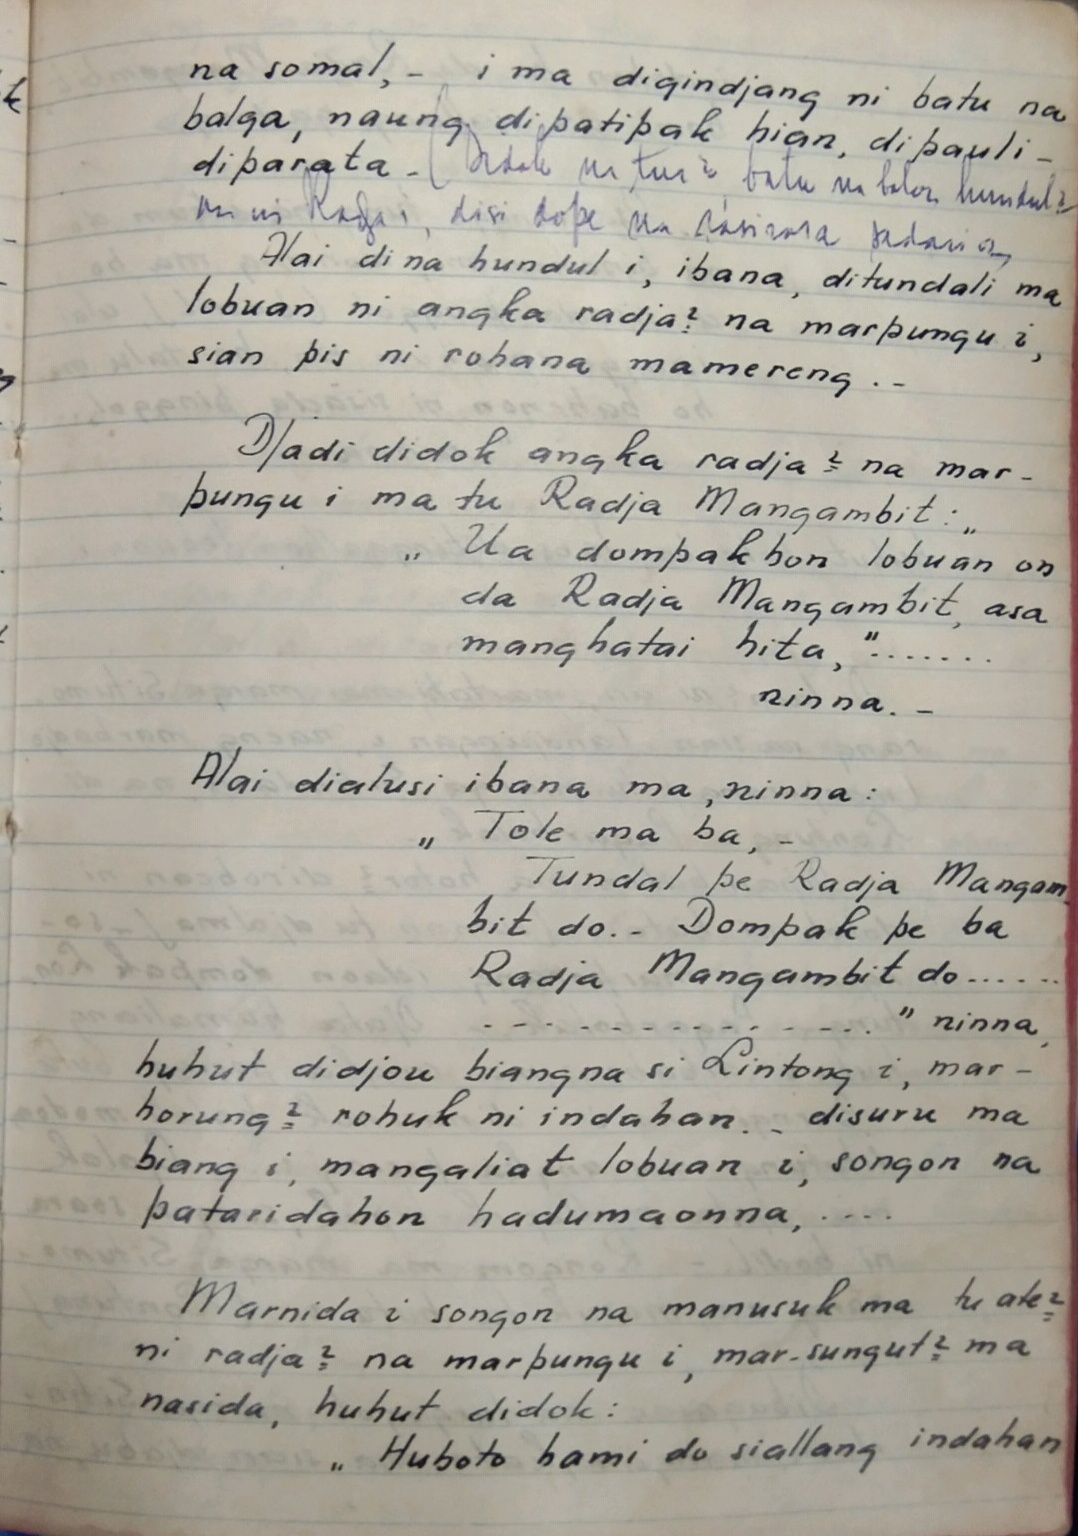 na somal, - i ma digindjang ni batu na
balga, naung dipatipak hian, dipauli -
diparata - ( batu na hundul²
ni Radja², disi dope na
Alai dina hundul i, ibana, ditundali ma
lobuan ni angka radja² na marpungu i,
sian pis ni rohana mamereng . -
Djadi didok angka radja² na mar -
pungu i ma tu Radja Mangambit : „
„ Ua dompakhon lobuan on
da Radja Mangambit, asa
manghatai hita, " .......
ninna. -
Alai dialusi ibana ma, ninna :
„ Tole ma ba, -
Tundal pe Radja Mangam-
bit do. - Dompak pe ba
Radja Mangambit do ......
- - - - - - - - - - - - - - . " ninna,
huhut didjou biangna si Lintong i, mar -
horung² rohuk ni indahan. - disuru ma
biang i, mangaliat lobuan i, songon na
pataridahon hadumaonna, ....
Marnida i songon na manusuk ma tu ate²
ni radja² na marpungu i, mar-sungut² ma
nasida, huhut didok :
„ Huboto hami do siallang indahan